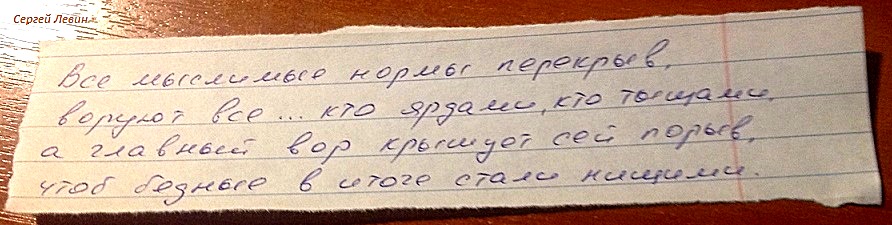 Сергей Левин
Все мыслимые нормы перекрыв,
воруют все... кто ярдами, кто тыщами,
а главный вор крышует сей порыв,
чтоб бедные в итоге стали нищими.